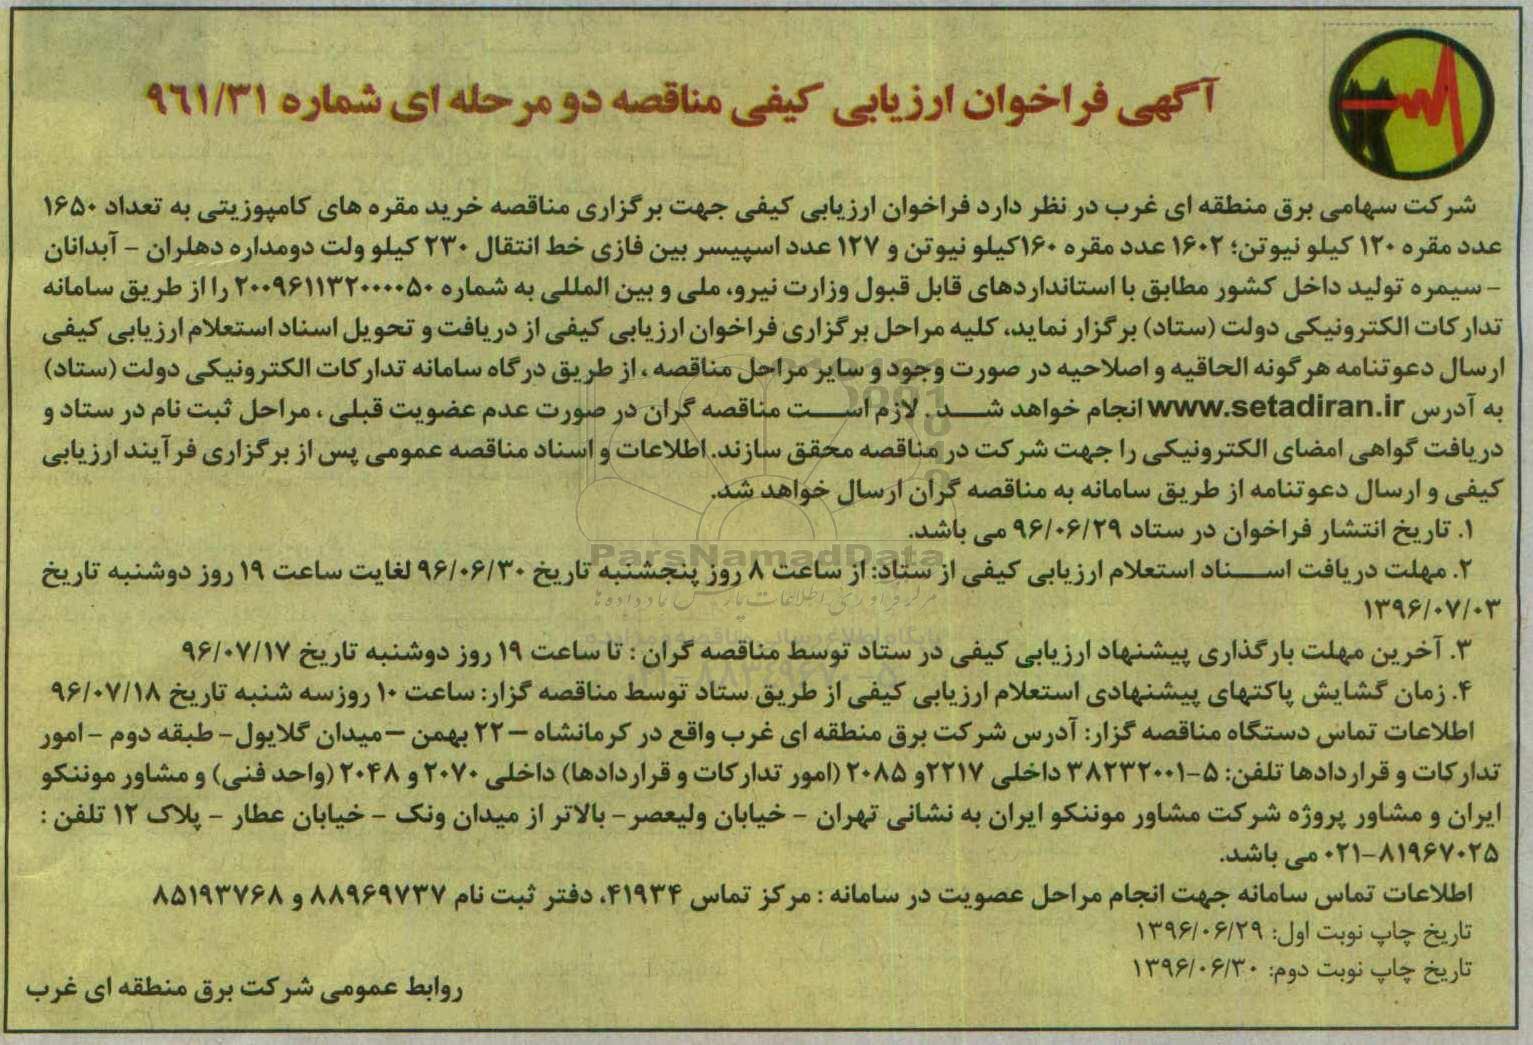 آگهی فراخوان ارزیابی کیفی مناقصه دو مرحله ای شماره ۹۶۱/۳۱
شرکت سهامی برق منطقه ای غرب در نظر دارد فراخوان ارزیابی کیفی جهت برگزاری مناقصه خرید مقره های کامپوزیتی به تعداد ۱۶۵۰
عدد مقره ۱۲۰ کیلو نیوتن؛ ۱۶۰۲ عدد مقره ۱۶۰کیلو نیوتن و ۱۲۷ عدد اسپیسر بین فازی خط انتقال ۲۳۰ کیلو ولت دومداره دهلران - آبدانان
- سیمره تولید داخل کشور مطابق با استانداردهای قابل قبول وزارت نیرو، ملی و بین المللی به شماره ۲۰۰۹۶۱۱۳۲۰۰۰۰۵۰ را از طریق سامانه
تدارکات الکترونیکی دولت (ستاد) برگزار نماید، کلیه مراحل برگزاری فراخوان ارزیابی کیفی از دریافت و تحویل اسناد استعلام ارزیابی کیفی
ارسال دعوتنامه هرگونه الحاقیه و اصلاحیه در صورت وجود و سایر مراحل مناقصه ، از طریق درگاه سامانه تدارکات الکترونیکی دولت (ستاد)
به آدرس www.setadiran.ir انجام خواهد شد . لازم است مناقصه گران در صورت عدم عضویت قبلی ، مراحل ثبت نام در ستاد و
دریافت گواهی امضای الکترونیکی را جهت شرکت در مناقصه محقق سازند. اطلاعات و اسناد مناقصه عمومی پس از برگزاری فرآیند ارزیابی
کیفی و ارسال دعوتنامه از طریق سامانه به مناقصه گران ارسال خواهد شد.
۱. تاریخ انتشار فراخوان در ستاد ۹۶/۰۶/۲۹ می باشد.
۲. مهلت دریافت اسناد استعلام ارزیابی کیفی از ستاد: از ساعت ۸ روز پنجشنبه تاریخ ۹۶/۰۶/۳۰ لغایت ساعت ۱۹ روز دوشنبه تاریخ
۱۳۹۶/۰۷/۰۳
۳. آخرین مهلت بارگذاری پیشنهاد ارزیابی کیفی در ستاد توسط مناقصه گران : تا ساعت ۱۹ روز دوشنبه تاریخ ۹۶/۰۷/۱۷
۴. زمان گشایش پاکتهای پیشنهادی استعلام ارزیابی کیفی از طریق ستاد توسط مناقصه گزار: ساعت ۱۰ روزسه شنبه تاریخ ۹۶/۰۷/۱۸
اطلاعات تماس دستگاه مناقصه گزار: آدرس شرکت برق منطقه ای غرب واقع در کرمانشاه – ۲۲ بهمن – میدان گلایول- طبقه دوم - امور
تدارکات و قراردادها تلفن: ۵-۳۸۲۳۲۰۰۱ داخلی ۲۲۱۷و ۲۰۸۵ (امور تدارکات و قراردادها) داخلی ۲۰۷۰ و ۲۰۴۸ (واحد فنی) و مشاور موننکو
ایران و مشاور پروژه شرکت مشاور موننکو ایران به نشانی تهران - خیابان ولیعصر- بالاتر از میدان ونک - خیابان عطار - پلاک ۱۲ تلفن :
۰۲۱-۸۱۹۶۷۰۲۵ می باشد.
اطلاعات تماس سامانه جهت انجام مراحل عصویت در سامانه : مرکز تماس ۴۱۹۳۴، دفتر ثبت نام ۸۸۹۶۹۷۳۷ و ۸۵۱۹۳۷۶۸
تاریخ چاپ نوبت اول: ۱۳۹۶/۰۶/۲۹
تاریخ چاپ نوبت دوم: ۱۳۹۶/۰۶/۳۰
روابط عمومی شرکت برق منطقه ای غرب
ParsNamadData